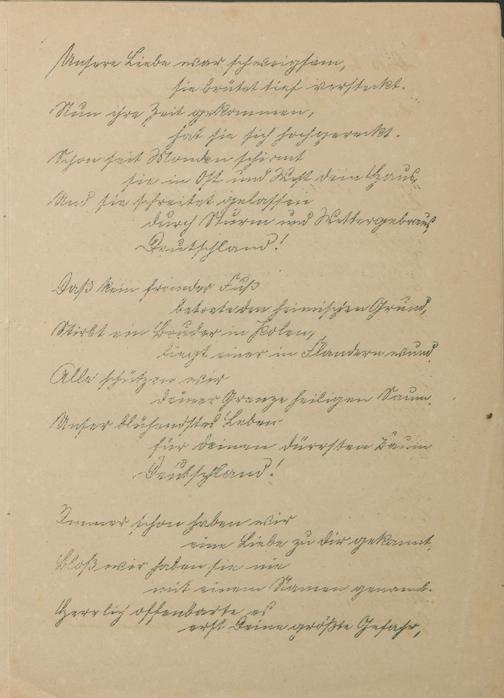 Unsere Liebe war schweigsam,
sie brütet tief versteckt.
Nun ihre Zeit gekommen,
hat sie sich hochgereckt.
Schon seit Monden schirmt
sie in Ost und West dein Haus.
Und sie schreitet gelassen
durch Sturm und Wettergebraus,
Deutschland!
Daß kein fremder Fuß
betrete den heimischen Grund,
Stirbt ein Bruder in Polen,
liegt einer in Flandern wund.
Alle schützen wir
deiner Grenze heiligen Saum.
Unser blühendstes Leben
für deinen dürrsten Baum
Deutschland!
Immer schon haben wir
eine Liebe zu dir gekannt,
bloß wir haben sie nie
mit einem Namen genannt.
Herrlich offenbarte es
erst deine größte Gefahr,